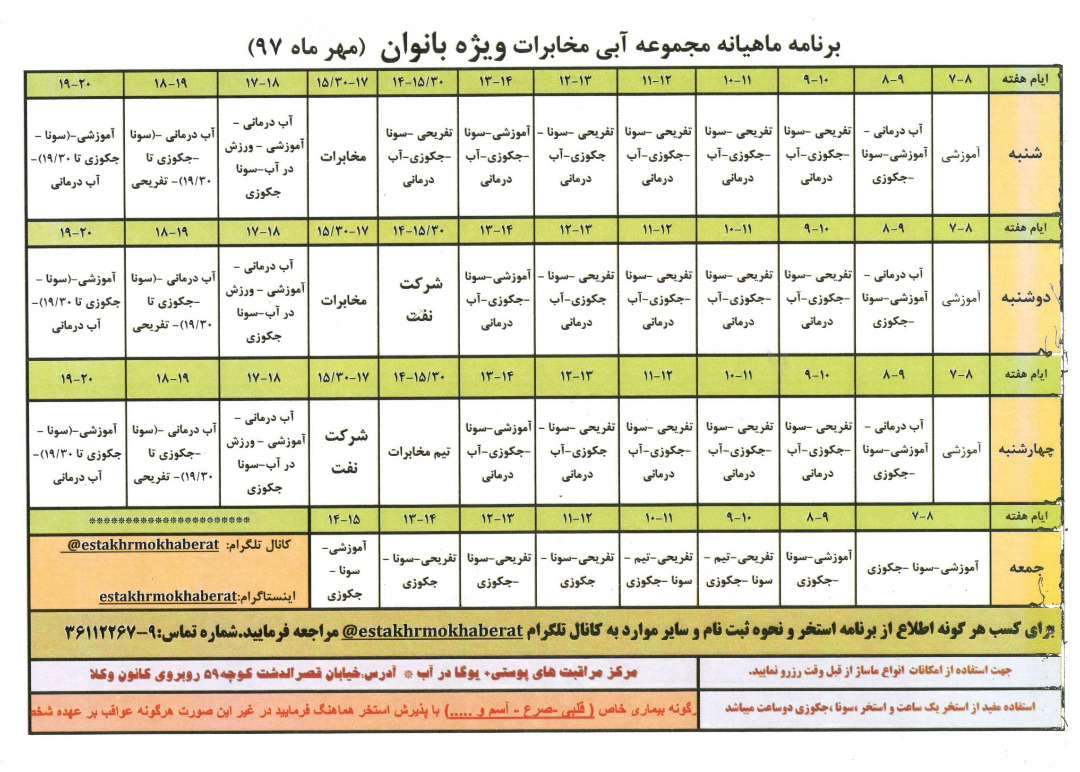 برنامه ماهیانه مجموعه آبی مخابرات ویژه بانوان (مهر ماه ۹۷)
ایام هفته ۷-۸ ۸-۹ ۹-۱۰ ۱۰-۱۱ ۱۱-۱۲ ۱۲-۱۳ ۱۳-۱۴ ۱۴-۱۵/۳۰ ۱۵/۳۰-۱۷ ۱۷-۱۸ ۱۸-۱۹ ۱۹-۲۰
شنبه
آموزشی
آب درمانی -
آموزشی-سونا
-جکوزی
تفریحی -سونا
-جکوزی-آب
درمانی
تفریحی -سونا
-جکوزی-آب
درمانی
تفریحی -سونا
-جکوزی-آب
درمانی
تفریحی -سونا -
جکوزی-آب
درمانی
آموزشی-سونا
-جکوزی-آب
درمانی
تفریحی -سونا
-جکوزی-آب
درمانی
مخابرات
آب درمانی -
آموزشی - ورزش
در آب-سونا
جکوزی
آب درمانی -(سونا
-جکوزی تا
۱۹/۳۰)- تفریحی
آموزشی-(سونا -
جکوزی تا ۱۹/۳۰)-
آب درمانی
ایام هفته ۷-۸ ۸-۹ ۹-۱۰ ۱۰-۱۱ ۱۱-۱۲ ۱۲-۱۳ ۱۳-۱۴ ۱۴-۱۵/۳۰ ۱۵/۳۰-۱۷ ۱۷-۱۸ ۱۸-۱۹ ۱۹-۲۰
دوشنبه
آموزشی
آب درمانی -
آموزشی-سونا
-جکوزی
تفریحی -سونا
-جکوزی-آب
درمانی
تفریحی -سونا
-جکوزی-آب
درمانی
تفریحی -سونا
-جکوزی-آب
درمانی
تفریحی -سونا -
جکوزی-آب
درمانی
آموزشی-سونا
-جکوزی-آب
درمانی
شرکت
نفت
مخابرات
آب درمانی -
آموزشی - ورزش
در آب-سونا
جکوزی
آب درمانی -(سونا
-جکوزی تا
۱۹/۳۰)- تفریحی
آموزشی-(سونا -
جکوزی تا ۱۹/۳۰)-
آب درمانی
ایام هفته ۷-۸ ۸-۹ ۹-۱۰ ۱۰-۱۱ ۱۱-۱۲ ۱۲-۱۳ ۱۳-۱۴ ۱۴-۱۵/۳۰ ۱۵/۳۰-۱۷ ۱۷-۱۸ ۱۸-۱۹ ۱۹-۲۰
چهارشنبه
آموزشی
آب درمانی -
آموزشی-سونا
-جکوزی
تفریحی -سونا
-جکوزی-آب
درمانی
تفریحی -سونا
-جکوزی-آب
درمانی
تفریحی -سونا
-جکوزی-آب
درمانی
تفریحی -سونا -
جکوزی-آب
درمانی
آموزشی-سونا
-جکوزی-آب
درمانی
تیم مخابرات
شرکت
نفت
آب درمانی -
آموزشی - ورزش
در آب-سونا
جکوزی
آب درمانی -(سونا
-جکوزی تا
۱۹/۳۰)- تفریحی
آموزشی-(سونا -
جکوزی تا ۱۹/۳۰)-
آب درمانی
ایام هفته ۷-۸ ۸-۹ ۹-۱۰ ۱۰-۱۱ ۱۱-۱۲ ۱۲-۱۳ ۱۳-۱۴ ۱۴-۱۵ **********************
جمعه
آموزشی-سونا -جکوزی
آموزشی-سونا
-جکوزی
تفریحی-تیم -
سونا -جکوزی
تفریحی-تیم -
سونا -جکوزی
تفریحی-سونا -
جکوزی
تفریحی-سونا
-جکوزی
تفریحی-سونا -
جکوزی
آموزشی-
سونا -
جکوزی
کانال تلگرام: @estakhrmokhaberat
اینستاگرام:estakhrmokhaberat
برای کسب هر گونه اطلاع از برنامه استخر و نحوه ثبت نام و سایر موارد به کانال تلگرام @estakhrmokhaberat مراجعه فرمایید.شماره تماس:۹-۳۶۱۱۲۲۶۷
جهت استفاده از امکانات انواع ماساژ از قبل وقت رزرو نمایید.
مرکز مراقبت های پوستی+ یوگا در آب * آدرس:خیابان قصرالدشت کوچه۵۹ روبروی کانون وکلا
استفاده مفید از استخر یک ساعت و استخر ،سونا ،جکوزی دوساعت میباشد
گونه بیماری خاص ( قلبی -صرع - آسم و .....) با پذیرش استخر هماهنگ فرمایید در غیر این صورت هرگونه عواقب بر عهده